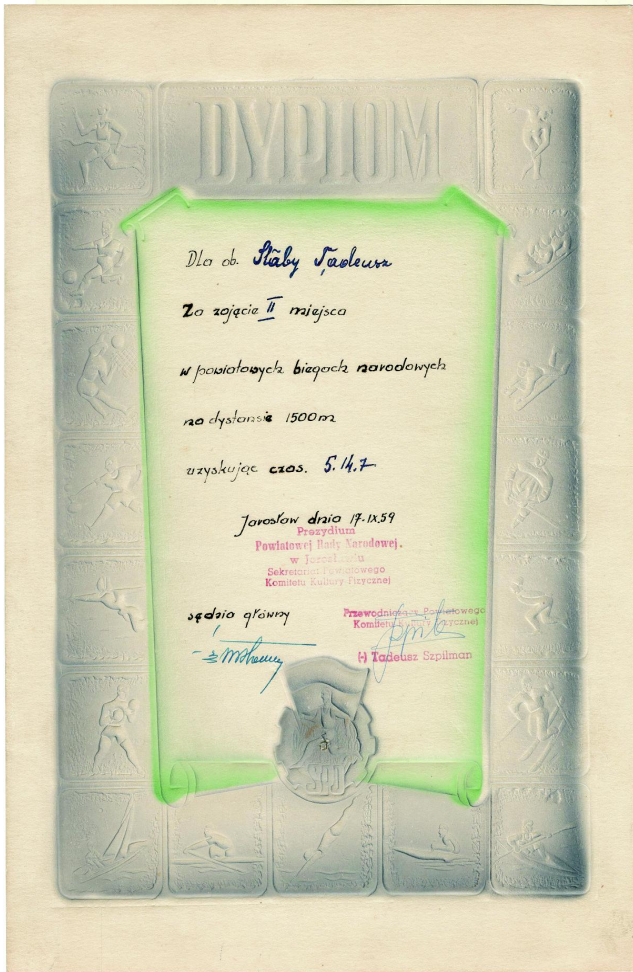 DYPLOM
Dla ob. Słaby Tadeusz
Za zajęcie II miejsca
w powiatowych biegach narodowych
na dystansie 1500m
uzyskując czas. 5.14.7
Jarosław dnia 17.IX.59
Prezydium
Powiatowej Rady Narodowej.
w Jarosławiu
Sekretariat Powiatowego
Komitetu Kultury Fizycznej
sędzia główny
Przewodniczący Powiatowego
Komitetu Kultury Fizycznej
(-) Tadeusz Szpilman